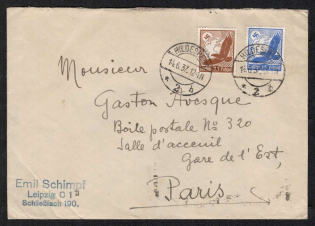 Monsieur
Gaston Avesque
Boite postale No 320
Salle d'acceuil
Gare de l'Est,
Paris
Emil Schimpf
Leipzig C 1
Schließfach 190.